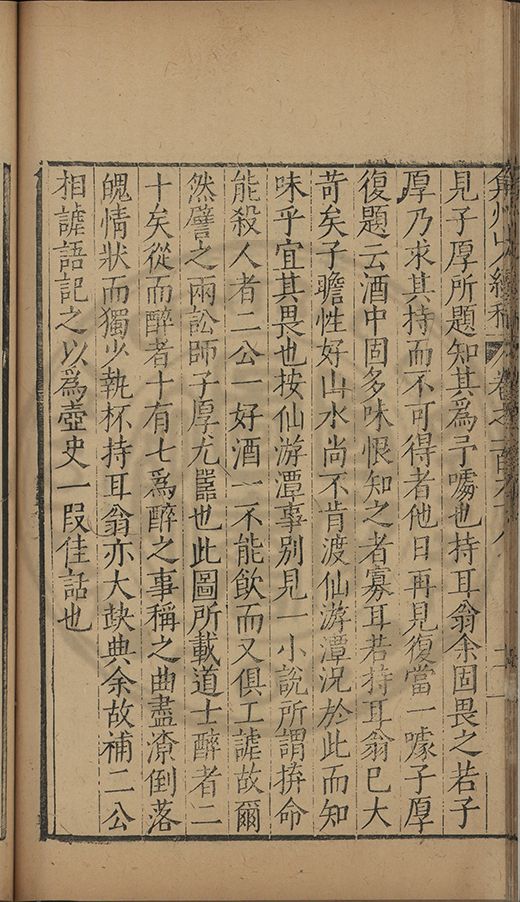 弇州山人續稿 卷之一百六十八 十一
見子厚所題知其為予噱也持耳翁余固畏之若子
厚乃求其持而不可得者他日再見復當一噱子厚
復題云酒中固多味恨知之者寡耳若持耳翁已大
苛矣子瞻性好山水尚不肯渡仙游潭況於此而知
味乎宜其畏也按仙游潭事別見一小說所謂拚命
能殺人者二公一好酒一不能飲而又俱工謔故爾
然譬之兩訟師子厚尤嚚也此圖所載道士醉者二
十矣從而醉者十有七為醉之事稱之曲盡潦倒落
魄情狀而獨少執杯持耳翁亦大缺典余故補二公
相謔語記之以為壺史一段佳話也